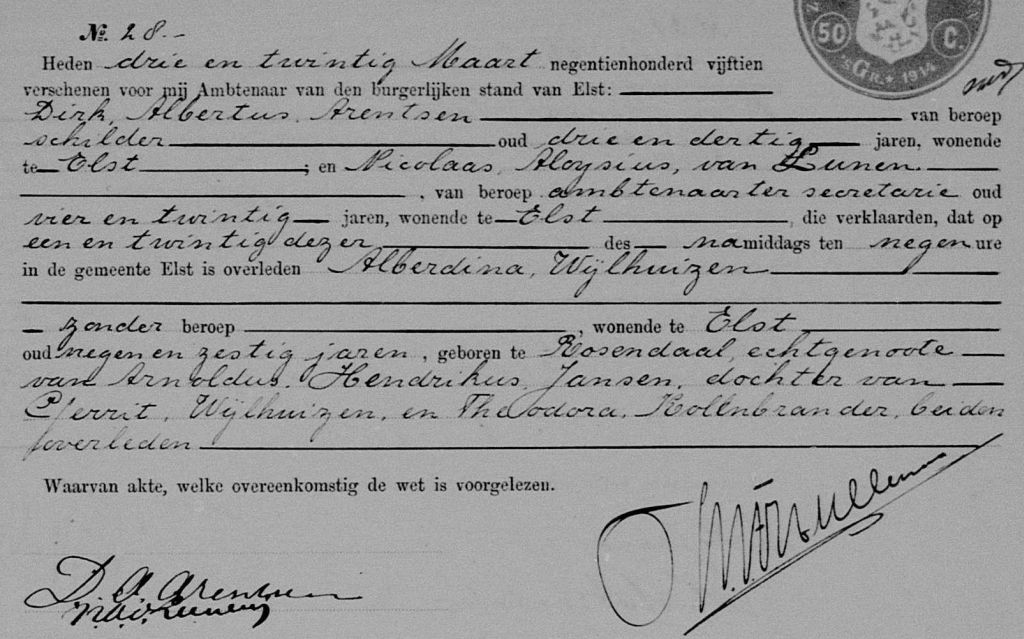 50 C.
GR. * 1914
No. 28.-
Heden drie en twintig Maart negentienhonderd vijftien
verschenen voor mij Ambtenaar van den burgerlijken stand van Elst:
Dirk, Albertus, Arentsen van beroep
schilder oud drie en dertig jaren, wonende
te Elst ; en Nicolaas, Aloysius, van Lunen.
, van beroep ambtenaar ter secretarie oud
vier en twintig jaren, wonende te Elst , die verklaarden, dat op
een en twintig dezer des namiddags ten negen ure
in de gemeente Elst is overleden Alberdina, Wijlhuizen
zonder beroep , wonende te Elst
oud negen en zestig jaren , geboren te Rosendaal, echtgenoote
van Arnoldus, Hendrikus, Jansen, dochter van
Gerrit, Wijlhuizen, en Theodora, Kollnbrander, beiden
overleden
Waarvan akte, welke overeenkomstig de wet is voorgelezen.
D. A. Arentsen